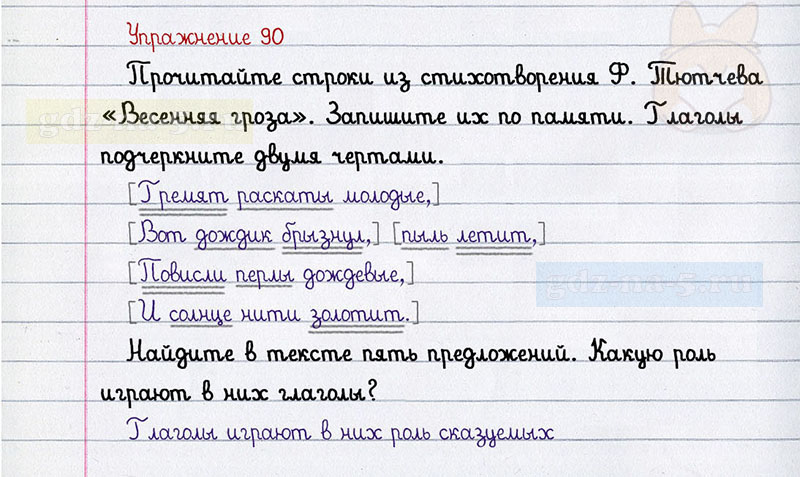 Упражнение 90
Прочитайте строки из стихотворения Ф. Тютчева
«Весенняя гроза». Запишите их по памяти. Глаголы
подчеркните двумя чертами.
[Гремят раскаты молодые,]
[Вот дождик брызнул,] [пыль летит,]
[Повисли перлы дождевые,]
[И солнце нити золотит.]
gdz-na-5.ru
Найдите в тексте пять предложений. Какую роль
играют в них глаголы?
Глаголы играют в них роль сказуемых